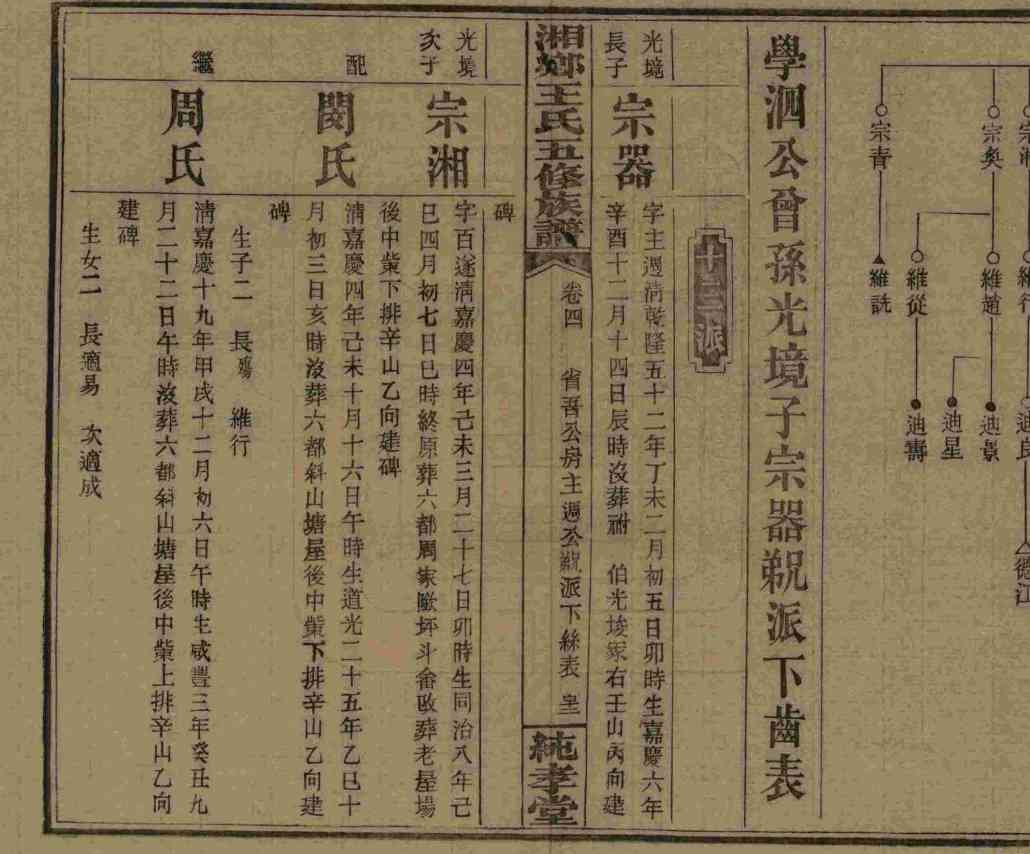 宗奧
宗青
維行
維趙
維從
維詵
迪良
迪景
迪星
迪壽
德江
學泗公曾孫光境子宗器覡派下齒表
十三派
光境
長子
宗器
字主週清乾隆五十二年丁未二月初五日卯時生嘉慶六年
辛酉十二月十四日辰時沒葬祔 伯光埈冢右壬山丙向建
碑
湘鄉王氏五修族譜
卷四 省吾公房主週公覡派下絲表
純孝堂
光境
次子
宗湘
字百遂清嘉慶四年己未三月二十七日卯時生同治八年己
巳四月初七日巳時終原葬六都周家 坪斗畬改葬老屋場
後中塋下排辛山乙向建碑
配
閔氏
清嘉慶四年己未十月十六日午時生道光二十五年乙巳十
月初三日亥時沒葬六都斜山塘屋後中塋下排辛山乙向建
碑
生子二 長殤 維行
繼
周氏
清嘉慶十九年甲戌十二月初六日午時生咸豐三年癸丑九
月二十二日午時沒葬六都斜山塘屋後中塋上排辛山乙向
建碑
生女二 長適易 次適成